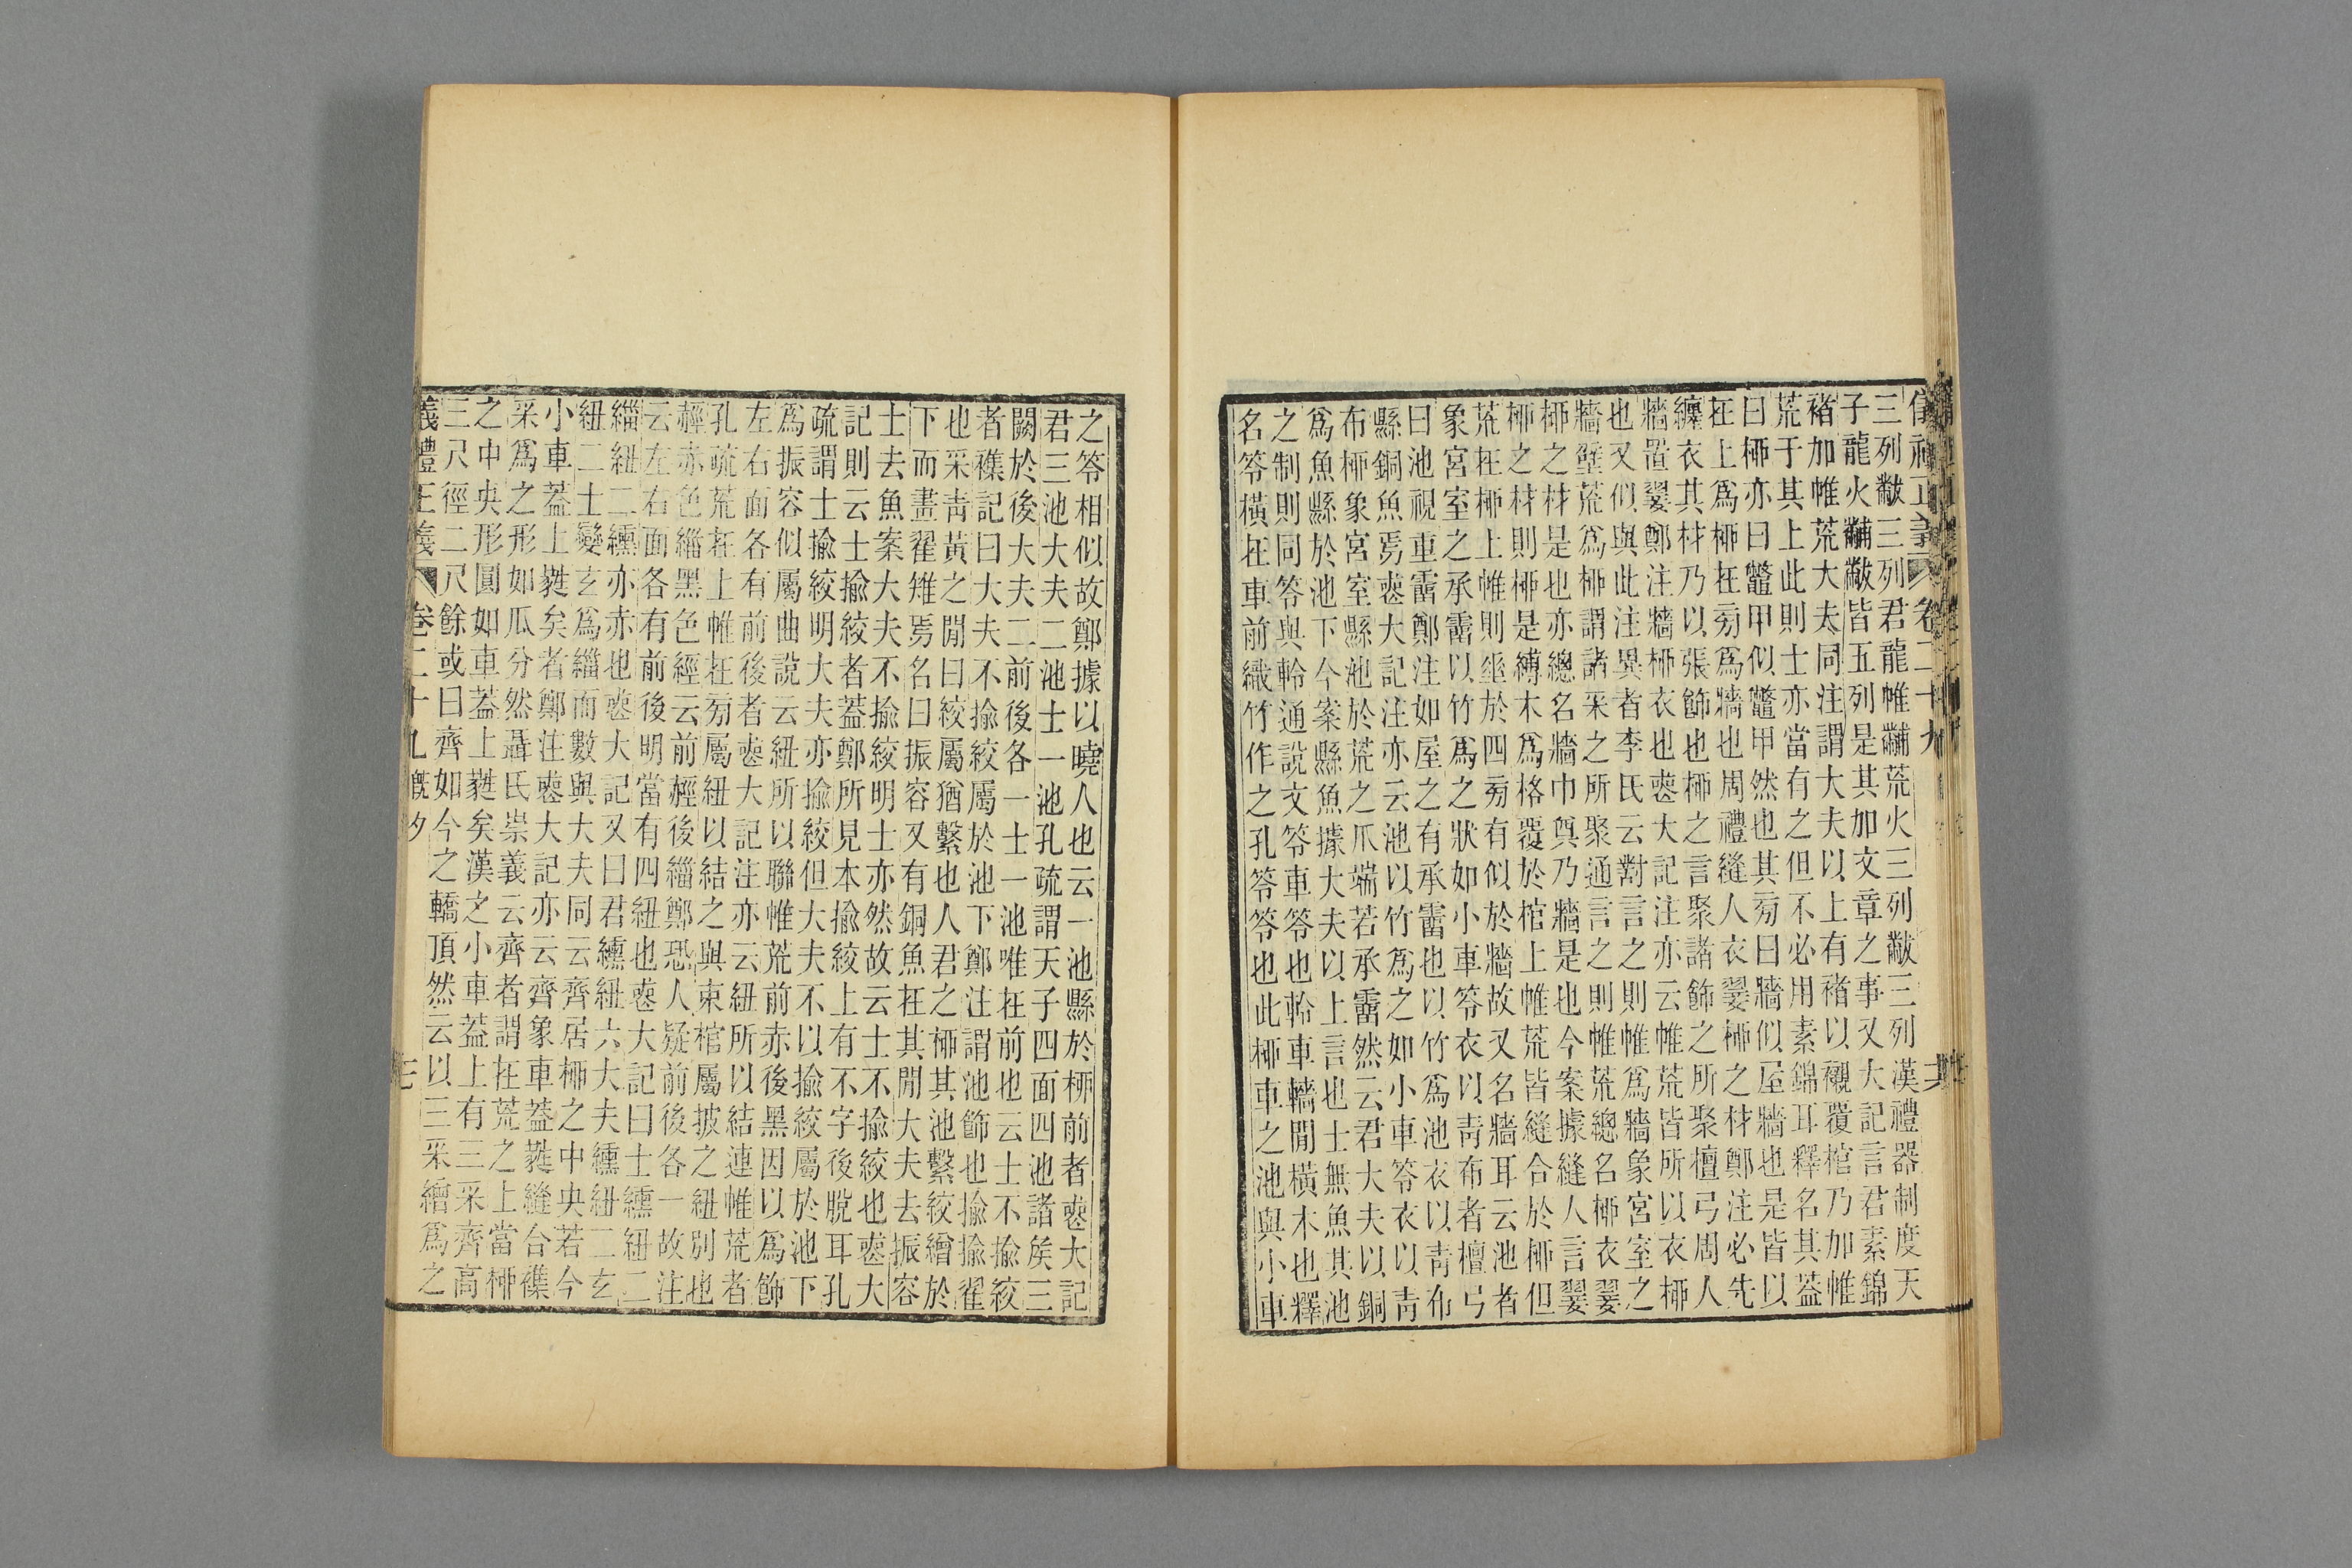 儀禮正義 卷二十九
三列黻三列君龍帷黼荒火三列黻三列漢禮器制度天
子龍火黼黻皆五列是其加文章之事又大記言君素錦
褚加帷荒大夫同注謂大夫以上有褚以襯覆棺乃加帷
荒于其上此則士亦當有之但不必用素錦耳釋名其蓋
曰柳亦曰鼈甲似鼈甲然也其旁曰牆似屋牆也是皆以
在上爲柳在旁爲牆也周禮縫人衣翣柳之材鄭注必先
纏衣其材乃以張飾也柳之言聚諸飾之所聚檀弓周人
牆置翣鄭注牆柳衣也喪大記注亦云帷荒皆所以衣柳
也又似與此注異者李氏云對言之則帷爲牆象宮室之
牆壁荒爲柳謂諸采之所聚通言之則帷荒總名柳衣翣
柳之材是也亦總名牆巾奠乃牆是也今案據縫人言翣
柳之材則柳是縛木爲格覆於棺上帷荒皆縫合於柳但
荒在柳上帷則垂於四旁有似於牆故又名牆耳云池者
象宮室之承霤以竹爲之狀如小車笭衣以青布者檀弓
曰池視重霤鄭注如屋之有承霤也以竹爲池衣以青布
縣銅魚焉喪大記注亦云池以竹爲之如小車笭衣以青
布柳象宮室縣池於荒之爪端若承霤然云君大夫以銅
爲魚縣於池下今案縣魚據大夫以上言也士無魚其池
之制則同笭與軨通說文笭車笭也軨車轖閒橫木也釋
名笭橫在車前織竹作之孔笭笭也此柳車之池與小車
之笭相似故鄭據以曉人也云一池縣於柳前者喪大記
君三池大夫二池士一池孔疏謂天子四面四池諸侯三
闕於後大夫二前後各一士一池唯在前也云士不揄絞
者襍記曰大夫不揄絞屬於池下鄭注謂池飾也揄揄翟
也采青黃之閒曰絞屬猶繫也人君之柳其池繫絞繒於
下而畫翟雉焉名曰振容又有銅魚在其閒大夫去振容
士去魚案大夫不揄絞明士亦然故云士不揄絞也喪大
記則云士揄絞者蓋鄭所見本揄絞上有不字後脫耳孔
疏謂士揄絞明大夫亦揄絞但大夫不以揄絞屬於池下
爲振容似屬曲說云紐所以聯帷荒前赤後黑因以爲飾
左右面各有前後者喪大記注亦云紐所以結連帷荒者
孔疏荒在上帷在旁屬紐以結之與束棺屬披之紐別也
䞓赤色緇黑色經云前䞓後緇鄭恐人疑前後各一故注
云左右面各有前後明當有四紐也喪大記曰士纁紐二
緇紐二纁亦赤也喪大記又曰君纁紐六大夫纁紐二玄
紐二士變玄爲緇而數與大夫同云齊居柳之中央若今
小車蓋上蕤矣者鄭注喪大記亦云齊象車蓋蕤縫合襍
采爲之形如瓜分然聶氏崇義云齊者謂在荒之上當柳
之中央形圓如車蓋上蕤矣漢之小車蓋上有三采齊高
三尺徑二尺餘或曰齊如今之轎頂然云以三采繒爲之
儀禮正義 卷二十九 旣夕